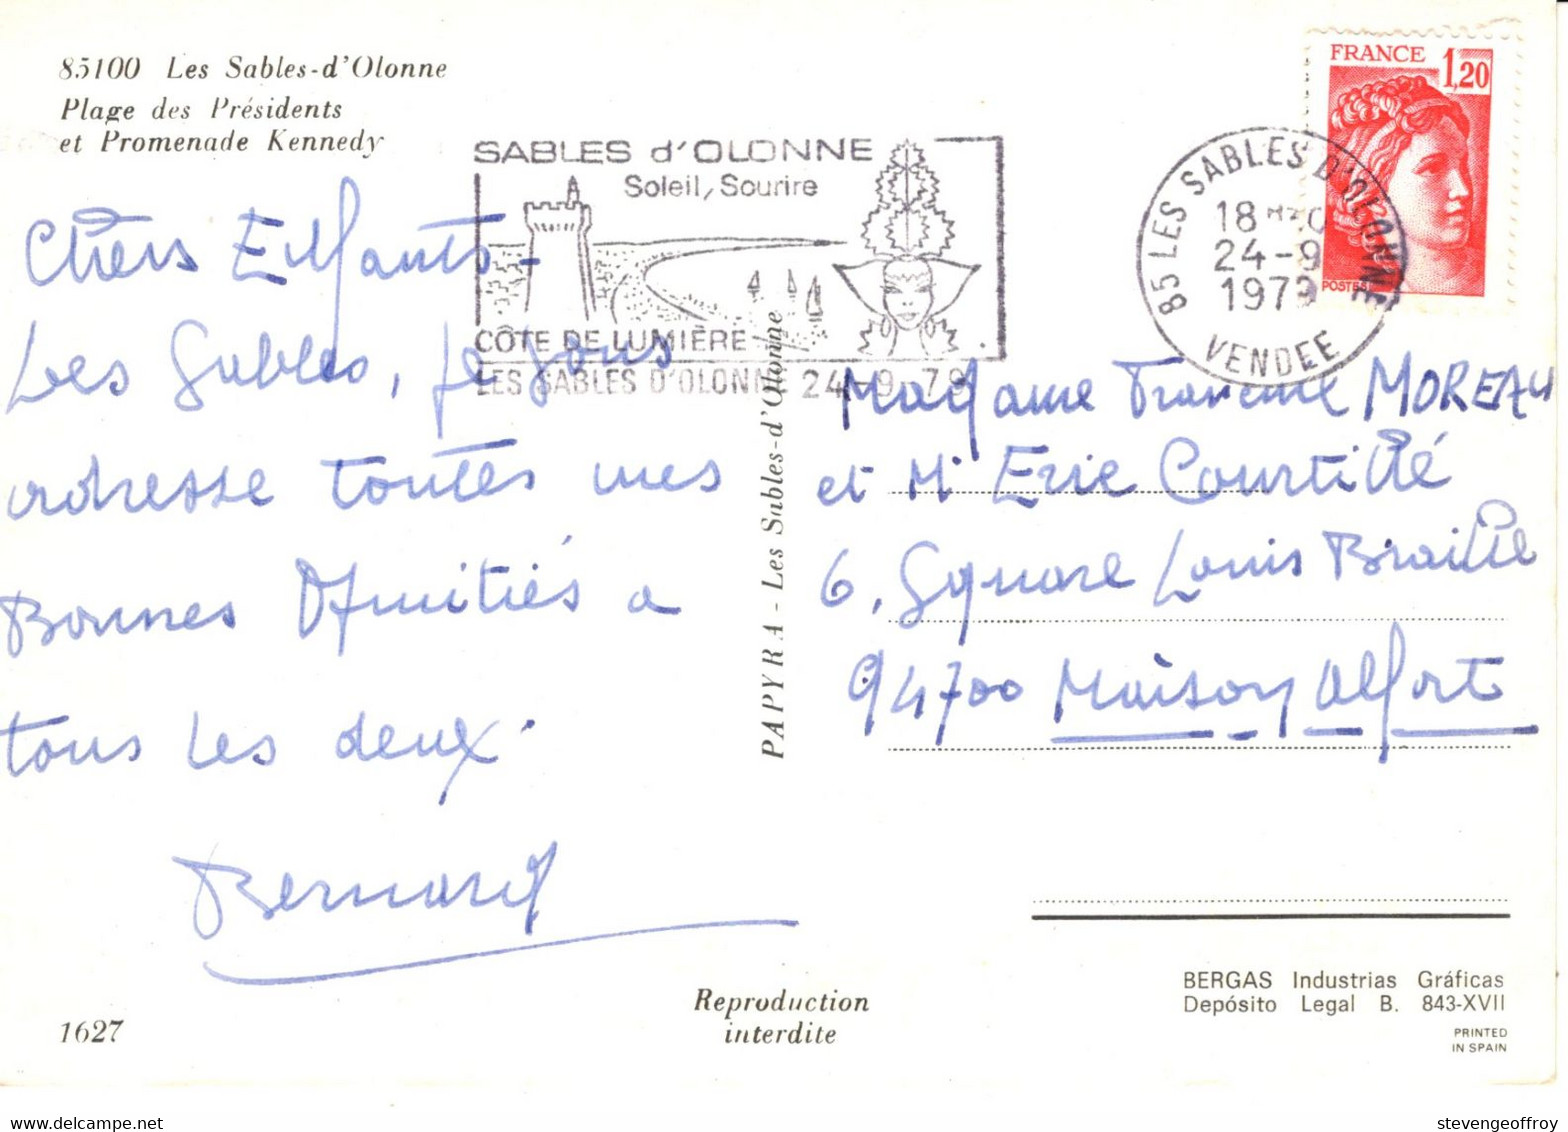 85100 Les Sables-d'Olonne
Plage des Présidents
et Promenade Kennedy
SABLES d'OLONNE
Soleil, Sourire
CÔTE DE LUMIÈRE
LES SABLES D'OLONNE 24-9-79
85 LES SABLES D'OLONNE
18 H
24-9
1979
VENDEE
FRANCE 1,20
POSTES
Chers Enfants -
Les Sables, je vous
adresse toutes mes
Bonnes Amitiés a
tous les deux.
Bernard
PAPYRA - Les Sables-d'Olonne
Madame Francine MOREAU
et Mr Eric Courtillé
6, Square Louis Braille
94700 Maison Alfort
Reproduction
interdite
1627
BERGAS Industrias Gráficas
Depósito Legal B. 843-XVII
PRINTED
IN SPAIN
stevengeoffroy